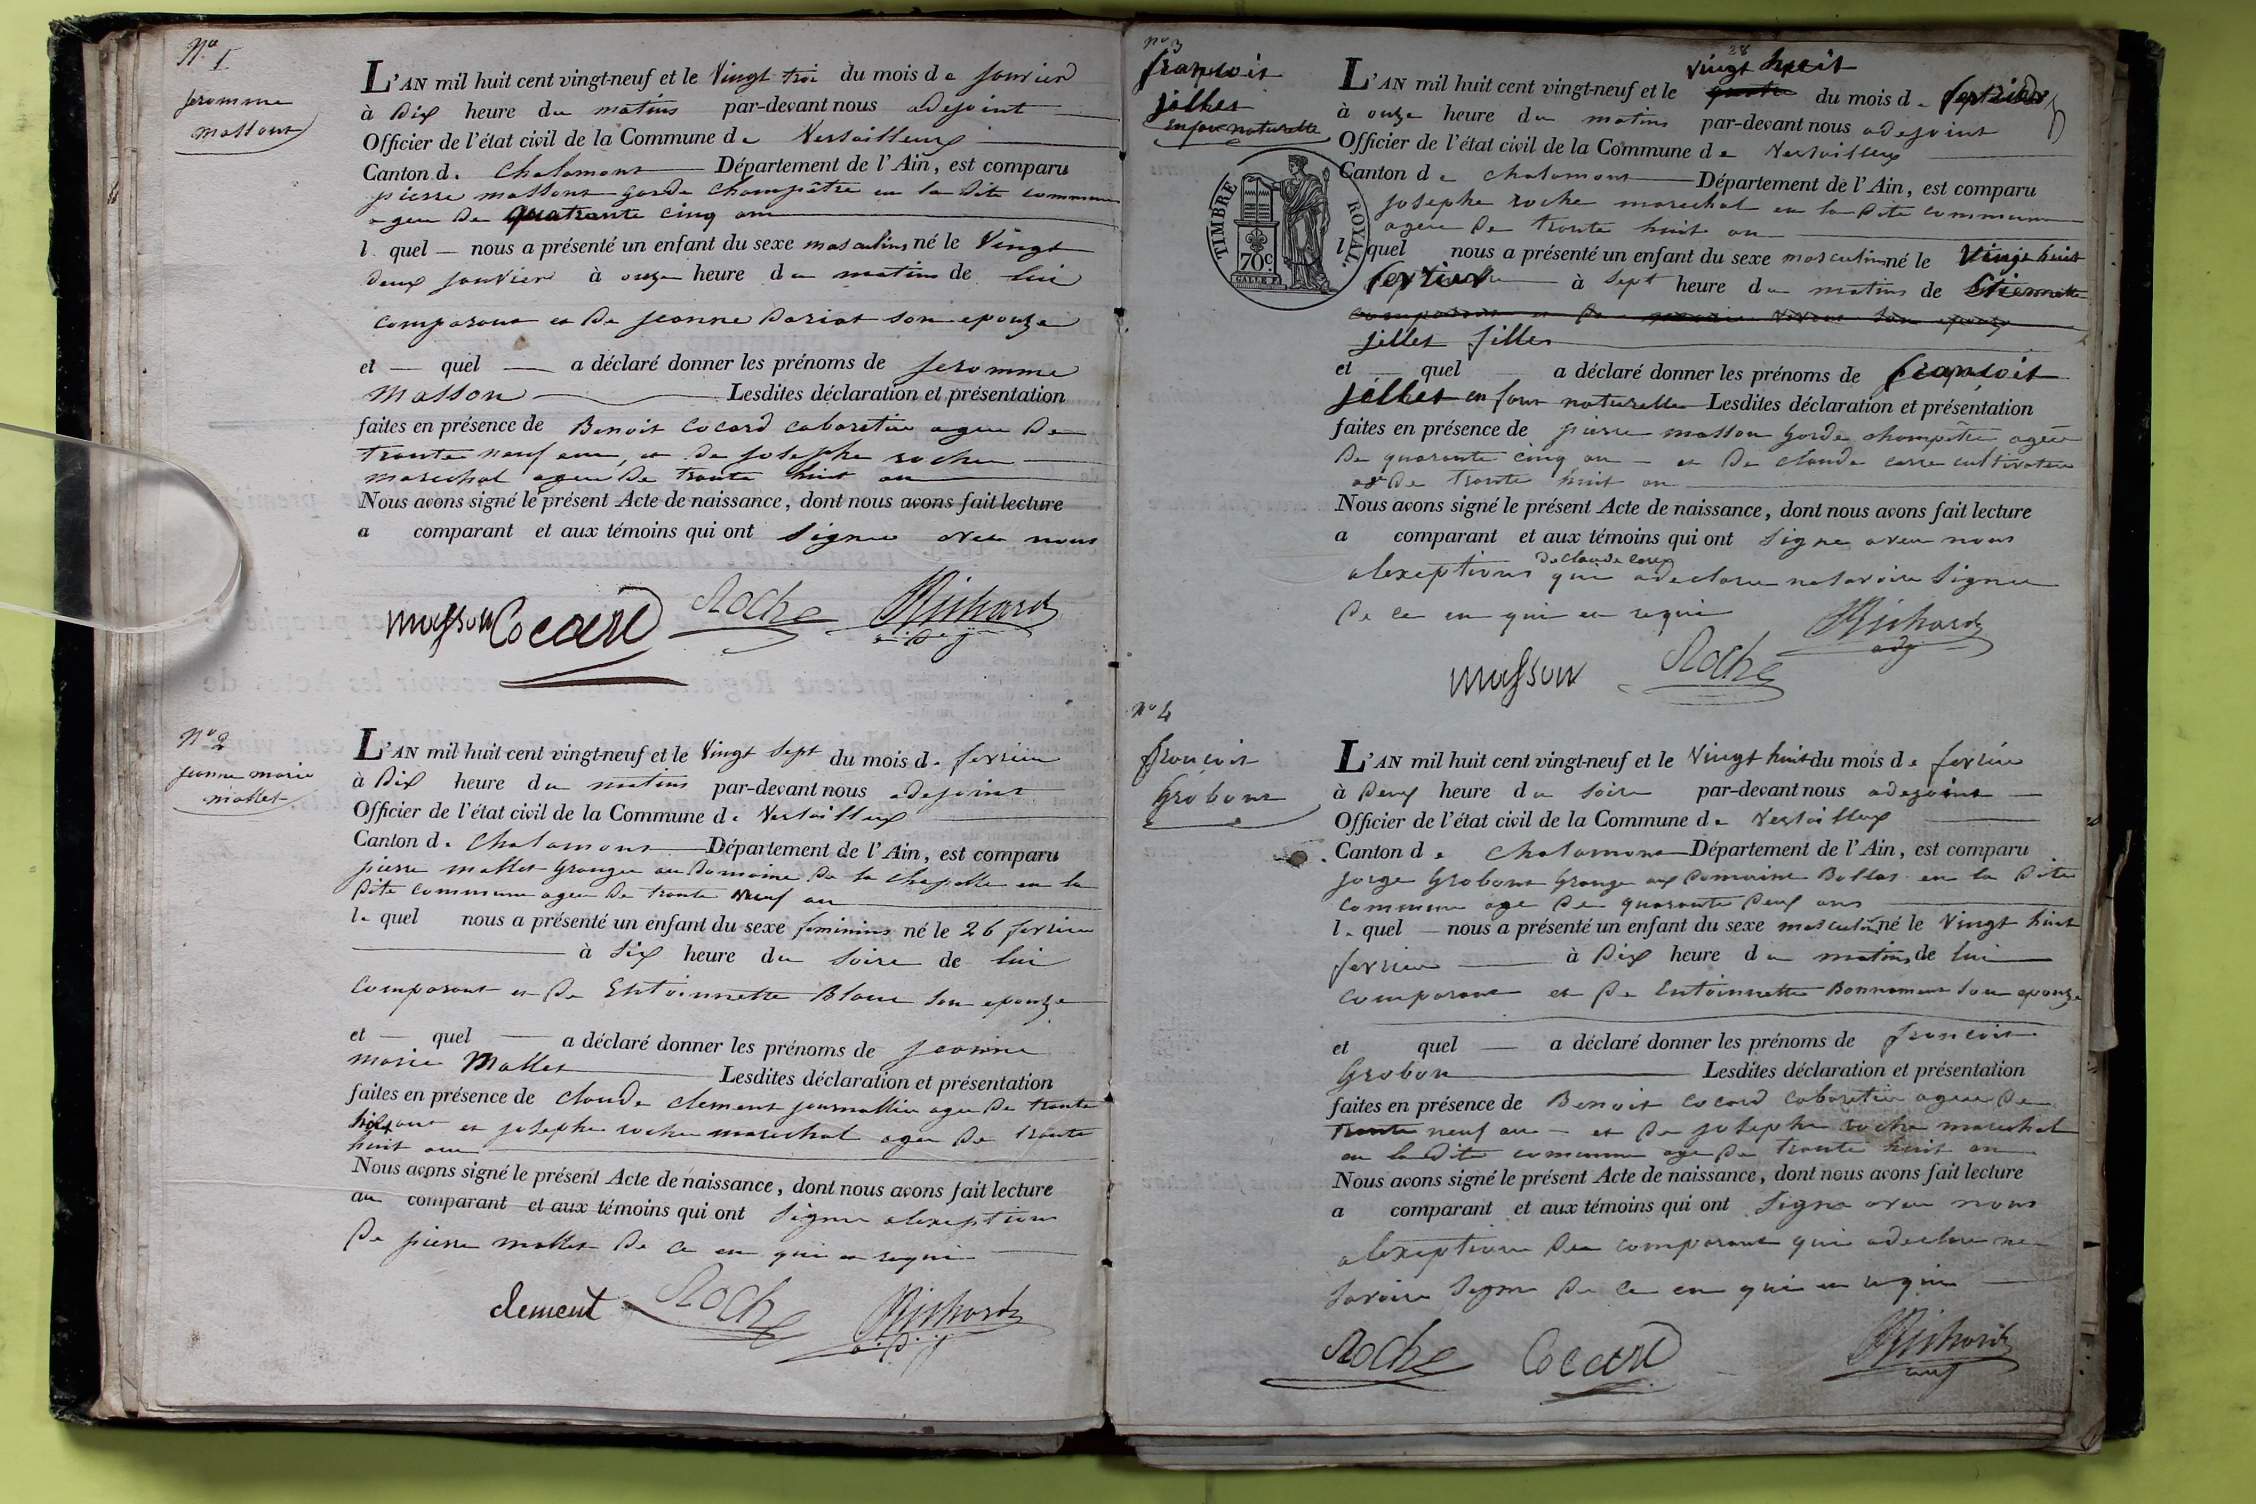 No 1
jeromme
massont
L'AN mil huit cent vingt-neuf et le vingt troi du mois de janvier
à dix heure du matins par-devant nous adejoint
Officier de l'état civil de la Commune de Versailleux
Canton de Chalamont Département de l'Ain, est comparu
pierre massont garde champêtre en la dite commune
agee de quatrante cinq ans
l quel nous a présenté un enfant du sexe masculins né le vingt
deux janvier à onze heure du matins de lui
comparant et de jeanne dariat son epouze
et quel a déclaré donner les prénoms de jeromme
Masson Lesdites déclaration et présentation
faites en présence de Benoit cocard cabaretier agee de
trante neuf ans, et de josephe roche
marechal agee de trante huit an
Nous avons signé le présent Acte de naissance, dont nous avons fait lecture
a comparant et aux témoins qui ont signee avec nous
masson Cocard Roche Richard
adj
No 2
jeanne marie
mallet
L'AN mil huit cent vingt-neuf et le vingt sept du mois de fevrier
à dix heure du matins par-devant nous adejoint
Officier de l'état civil de la Commune de Versailleux
Canton de Chalamont Département de l'Ain, est comparu
pierre mallet Granger au domaine de la chapelle en la
dite commune agee de trante neuf an
le quel nous a présenté un enfant du sexe feminins né le 26 fevrier
à six heure du soire de lui
comparant et de Entoinnette Blanc son epouze
et quel a déclaré donner les prénoms de jeanne
marie Mallet Lesdites déclaration et présentation
faites en présence de claude clement journallier agee de trante
ans et josephe roche marechal agee de trante
huit ans
Nous avons signé le présent Acte de naissance, dont nous avons fait lecture
au comparant et aux témoins qui ont signee alexeption
de pierre mallet de ce en qui en requi
clement Roche Richard
adj
No 3
françoit
jilles
enfant naturelle
TIMBRE ROYAL
70c
28
vingt huit
L'AN mil huit cent vingt-neuf et le du mois de fevrier
à onze heure du matins par-devant nous adejoint
Officier de l'état civil de la Commune de Versailleux
Canton de chalamont Département de l'Ain, est comparu
josephe roche marechal en la dite commune
agee de trante huit an
l quel nous a présenté un enfant du sexe masculins né le vingt huit
fevrier à sept heure du matins de Etiennette
comparant et de son epouze
jilles filles
et quel a déclaré donner les prénoms de françoit
jilles enfant naturelle Lesdites déclaration et présentation
faites en présence de pierre masson garde champêtre agee
de quarante cinq an et de claude carre cultivateur
de trante huit an
Nous avons signé le présent Acte de naissance, dont nous avons fait lecture
a comparant et aux témoins qui ont signe avec nous
de claude
alexeptions qui adeclaree ne savoire signee
de ce en qui en requi
masson Roche Richard
adj
No 4
françoit
Grobont
L'AN mil huit cent vingt-neuf et le vingt huit du mois de fevrier
à deux heure du soire par-devant nous adejoint
Officier de l'état civil de la Commune de Versailleux
Canton de chalamont Département de l'Ain, est comparu
jorge Grobont Grange au domaine Ballas en la dite
commune age de quarante deux ans
le quel nous a présenté un enfant du sexe masculins né le vingt huit
fevrier à dix heure du matins de lui
comparant et de Entoinnette Bonnament son epouze
et quel a déclaré donner les prénoms de françoit
Grobon Lesdites déclaration et présentation
faites en présence de Benoit cocard cabaretier agee de
trante neuf an et de josephe roche marechal
en la dite commune age de trante huit an
Nous avons signé le présent Acte de naissance, dont nous avons fait lecture
a comparant et aux témoins qui ont signe avec nous
alexeption du comparant qui adeclare ne
savoire signe de ce en qui en requi
Roche Cocard Richard
adj